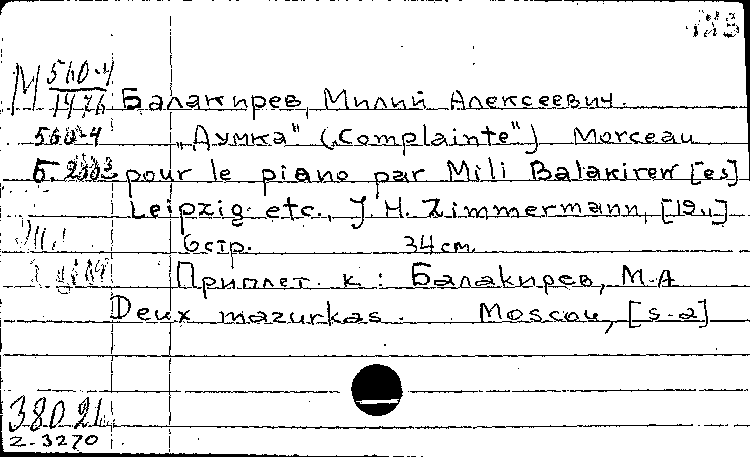 М 560-4
1476 Балакирев, Милий Алексеевич.
560-4 „Думка" („Complainte") Morceau
Б. 2333 pour le piano par Mili Balakirew [es]
Leipzig etc., J. H. Zimmermann, [19..]
6 стр. 34 см.
Приплет. к.: Балакирев, М.А
Deux mazurkas. Moscou, [s-a]
380 21
2-3270